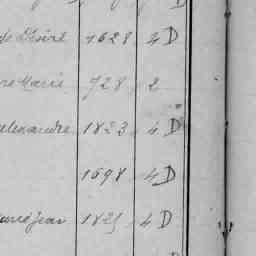 1628 4 D
Marie 728 2
Alexandre 1823 4 D
1698 4 D
Jean 1825 4 D